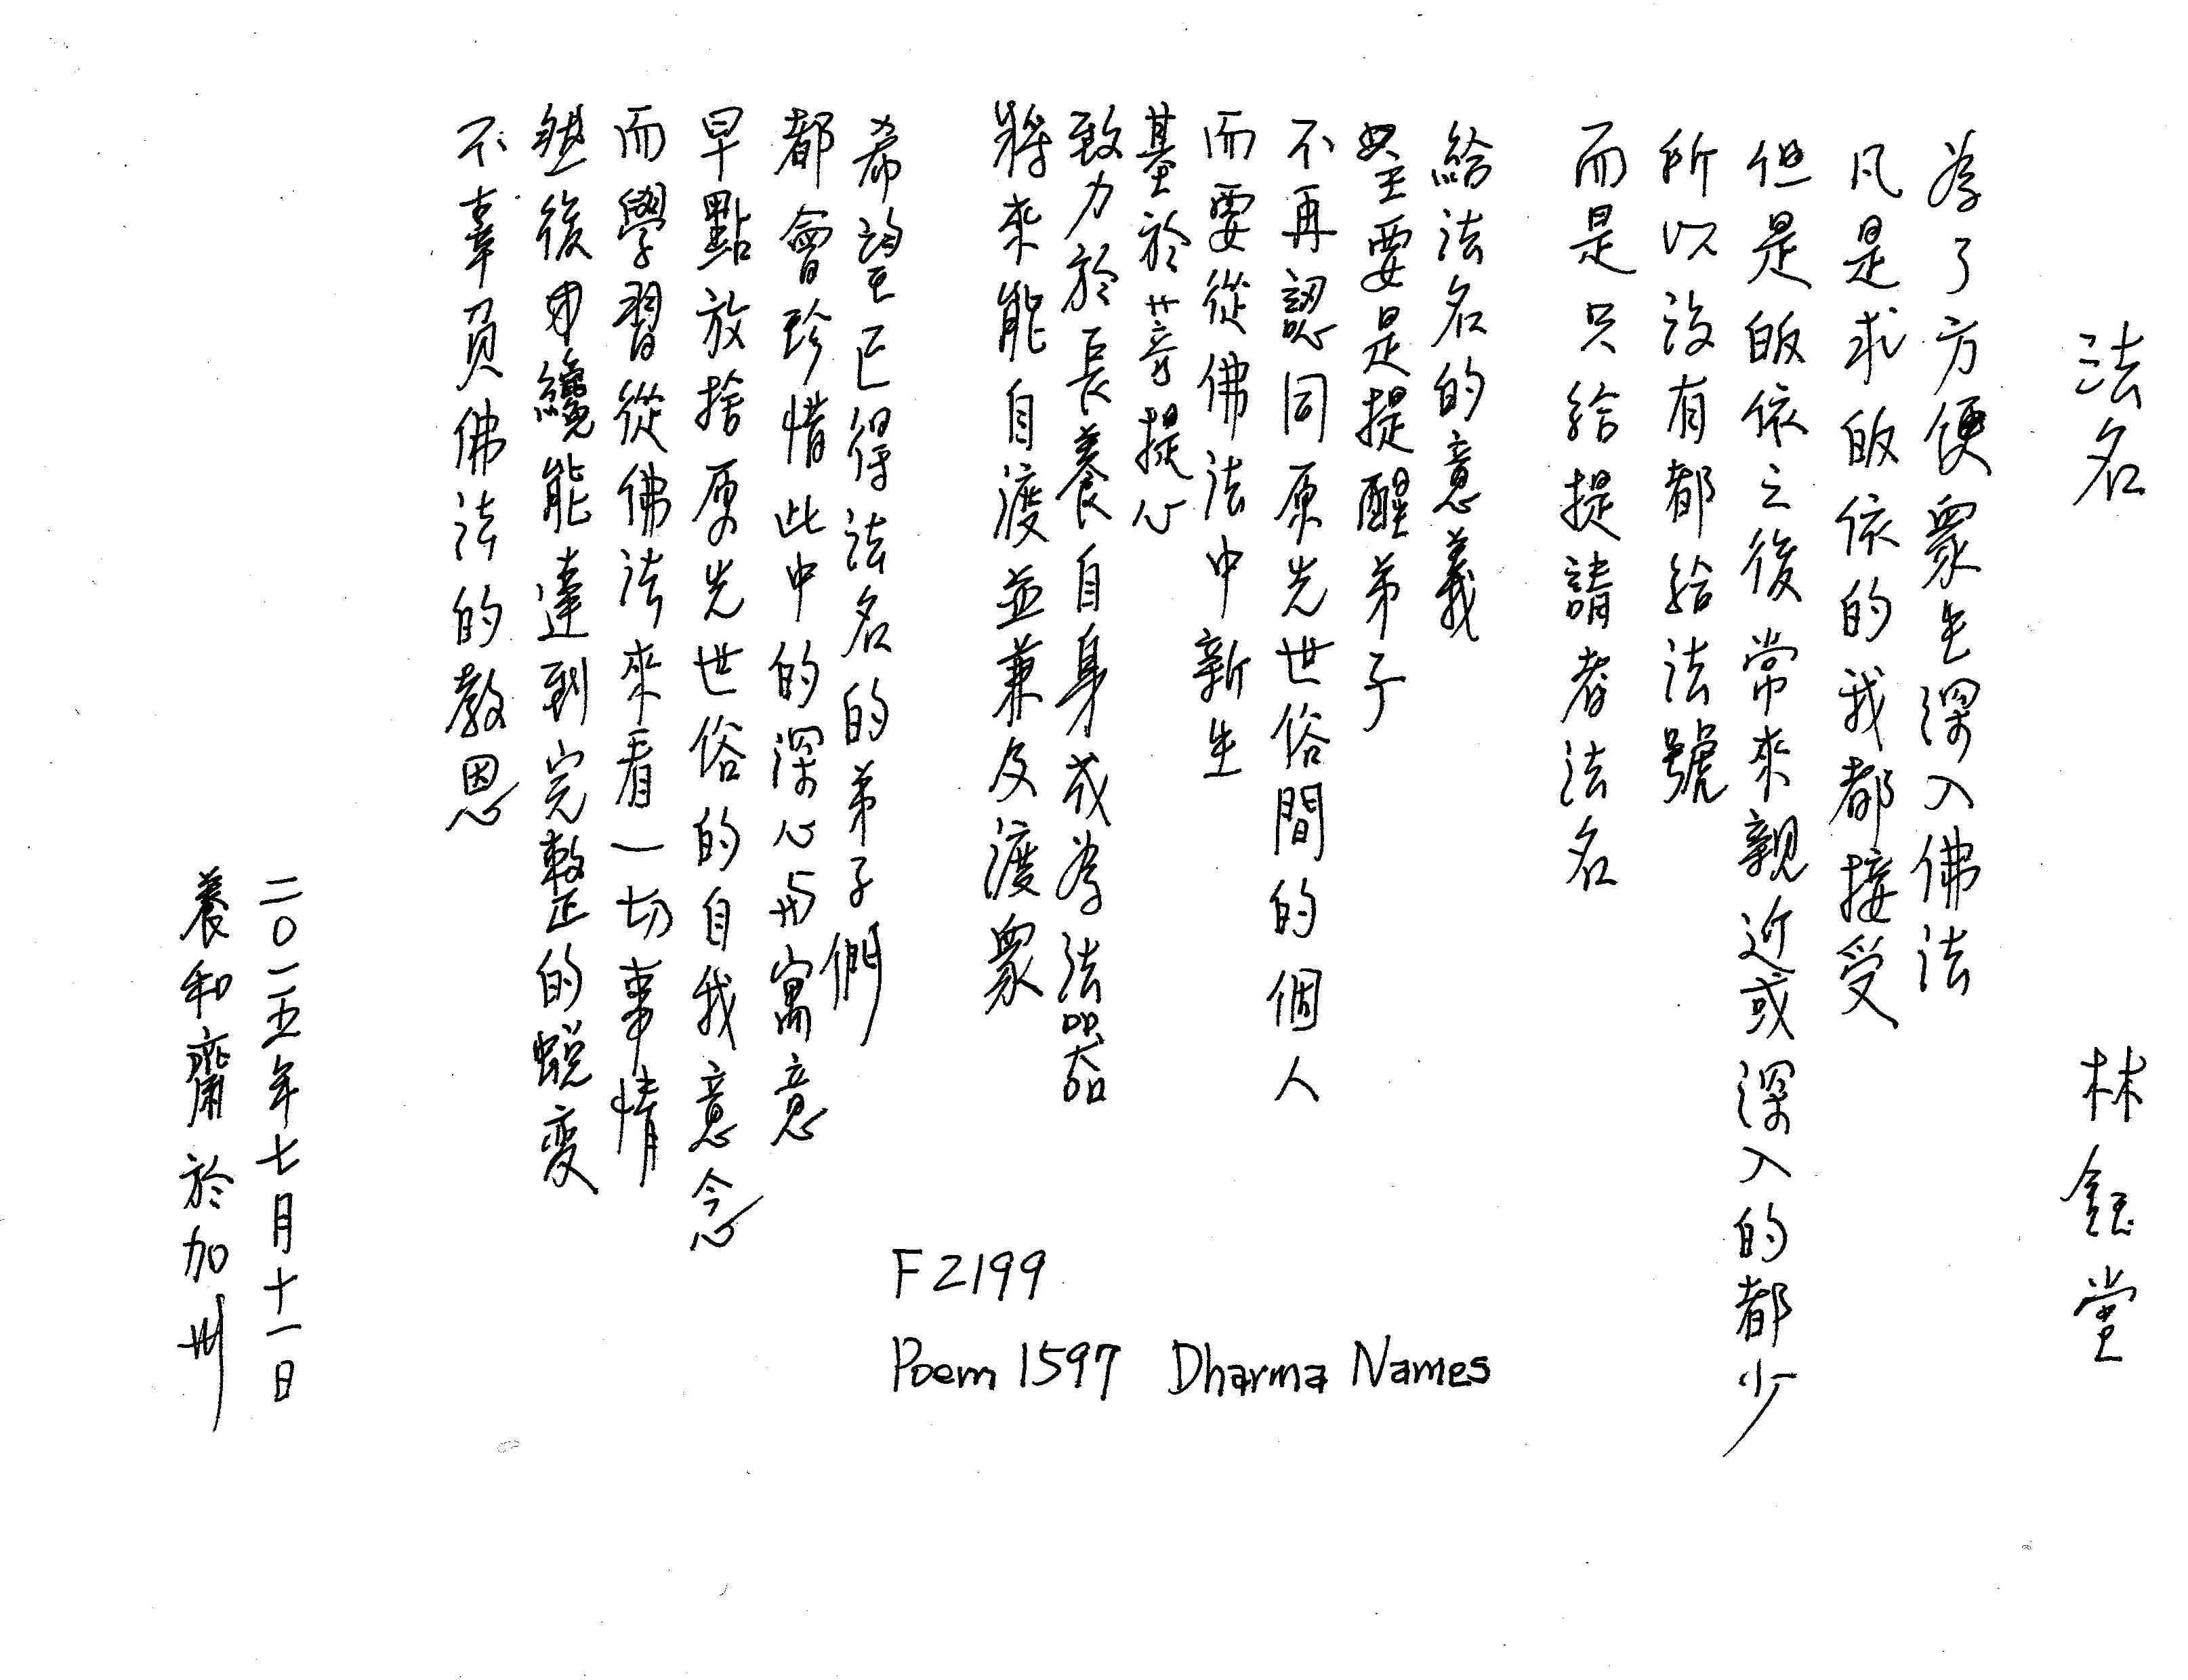 法名　林鈺堂
為了方便眾生深入佛法
凡是求皈依的我都接受
但是皈依之後常來親近或深入的都少
所以沒有都給法號
而是只給提請者法名
給法名的意義
主要是提醒弟子
不再認同原先世俗間的個人
而要從佛法中新生
基於菩提心
致力於長養自身成為法器
將來能自渡並兼及渡眾
希望已得法名的弟子們
都會珍惜此中的深心与寓意
早點放捨原先世俗的自我意念
而學習從佛法來看一切事情
然後纔能達到完整的蛻变
不辜負佛法的教恩
二〇一五年七月十一日
養和齋於加州
F2199
Poem 1597 Dharma Names